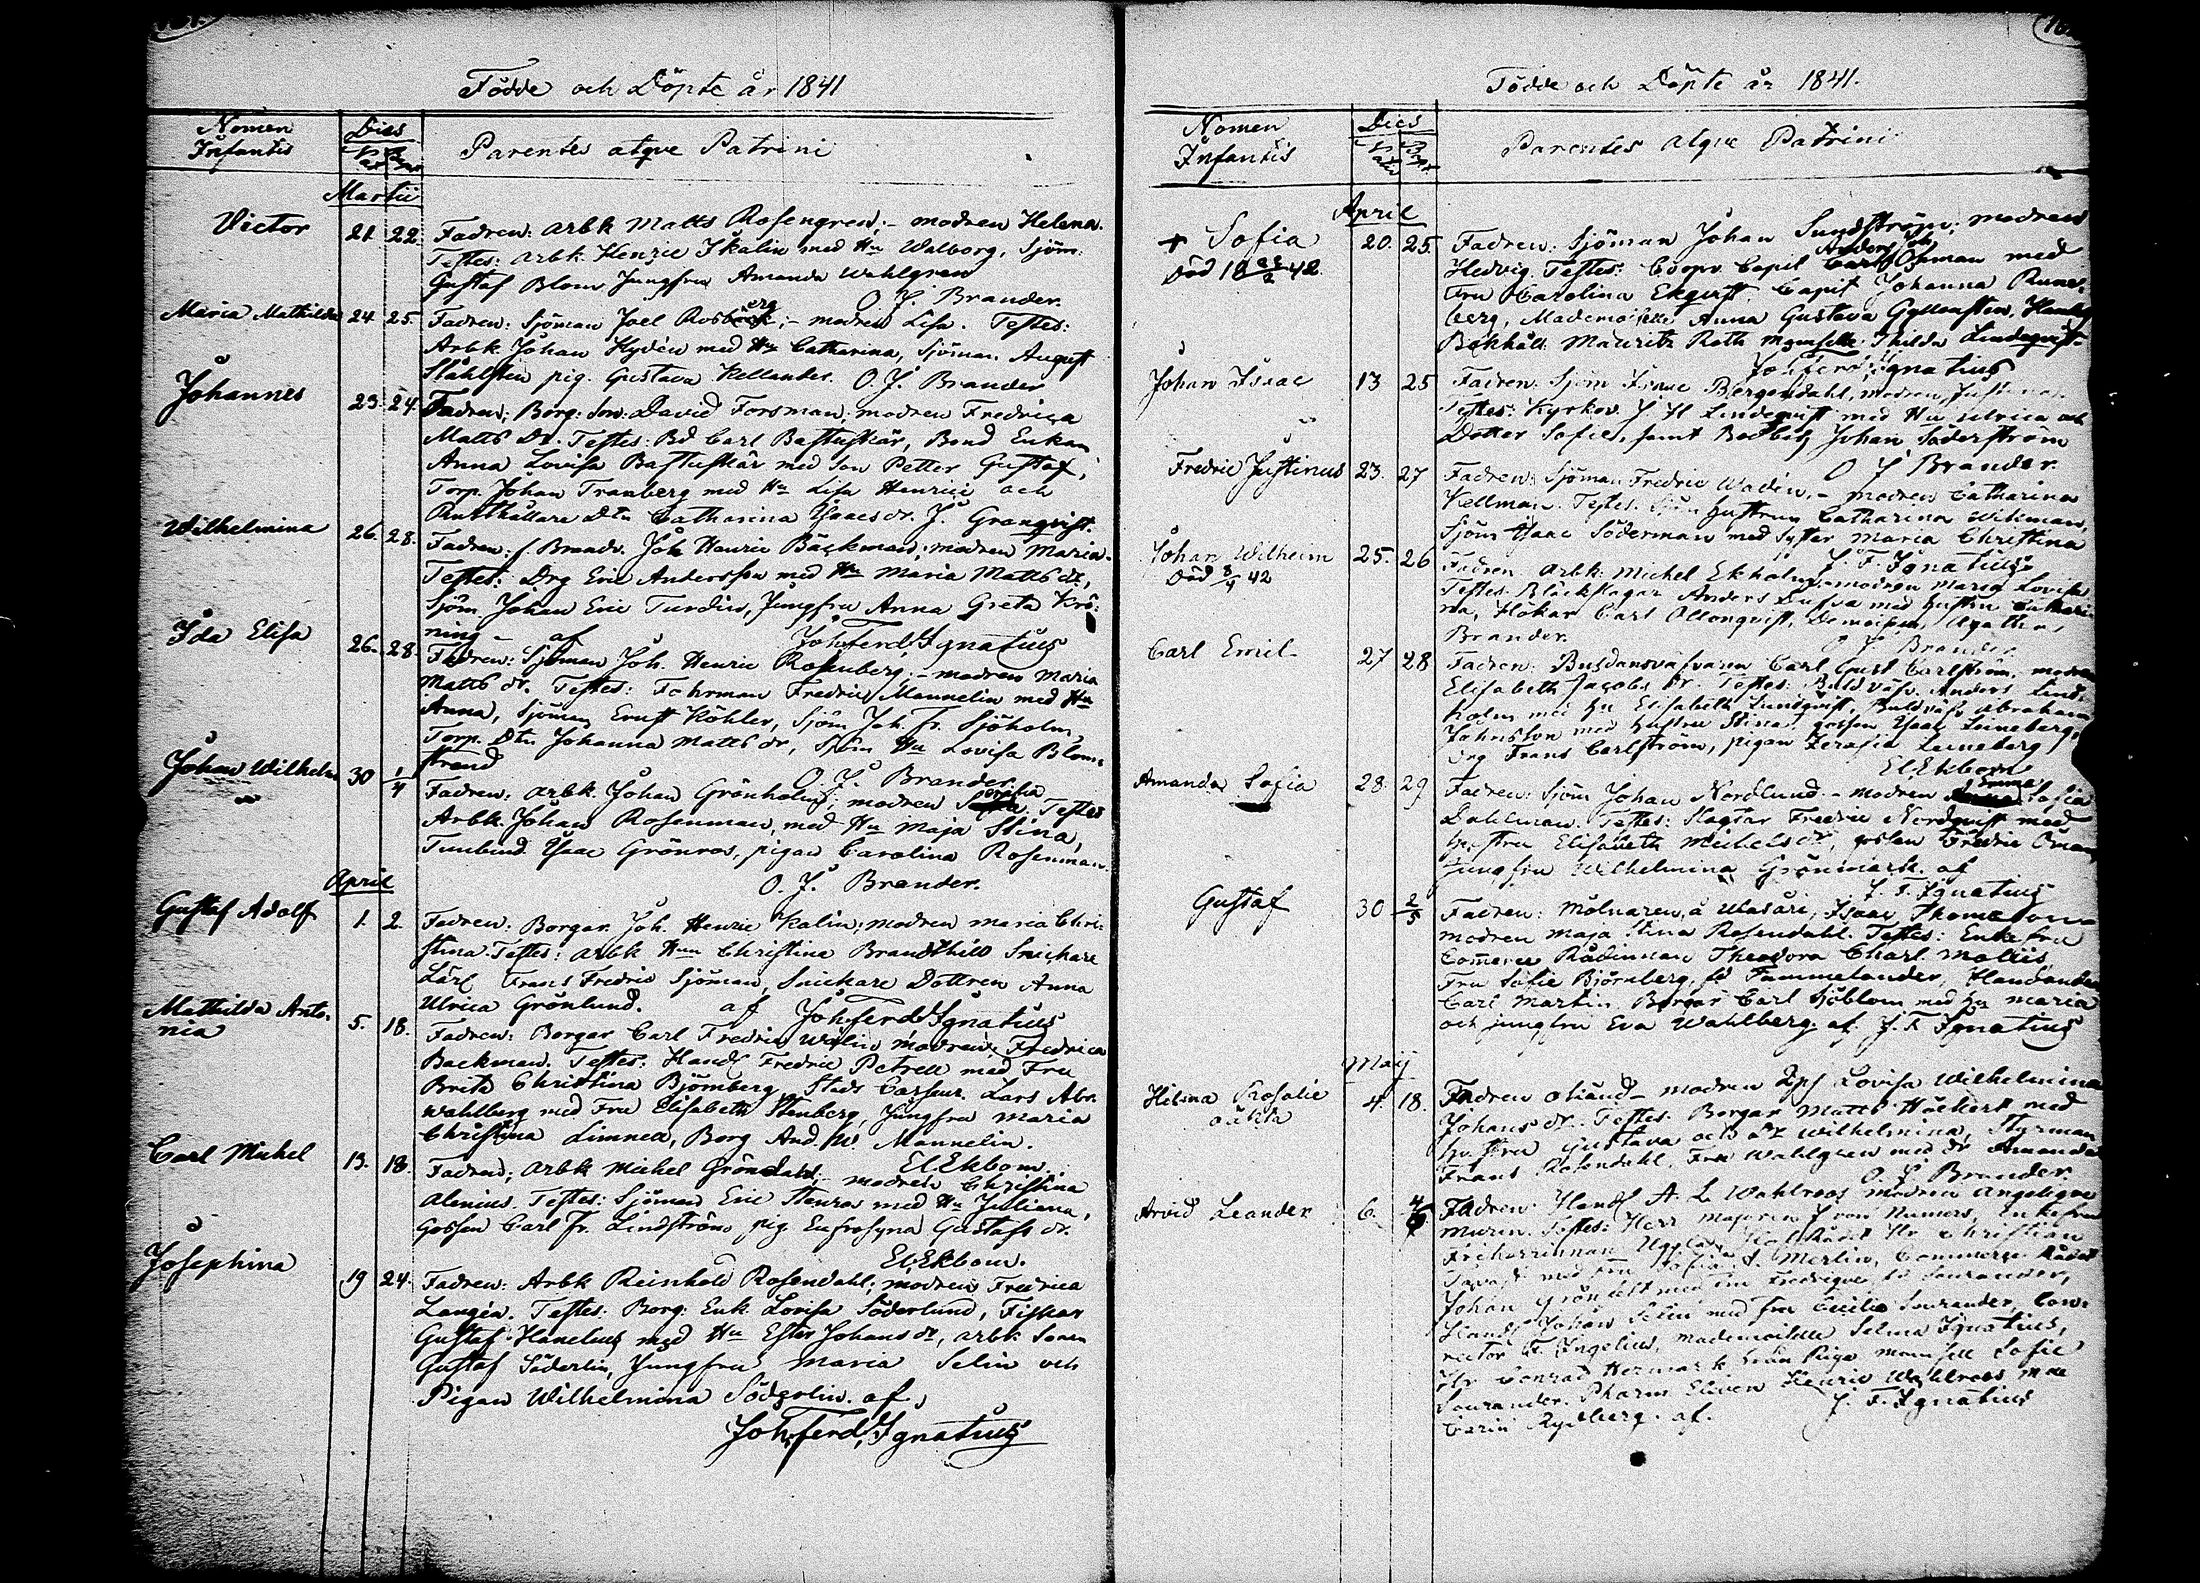 Födde och Döpte år 1841
Nomen Infantis
Dies
Parentes atqve Patrini
Martii
Victor 21 22. Fadren: Arbk Matts Rosengren; - modren Helena.
Testes: Arbk. Henric Skalin med Hu Walborg, Sjöm:
Gustaf Blom Jungfru Amanda Wahlgren
O. J. Brander.
Maria Mathilda 24. 25. Fadren: Sjöman Joel Rosberg; - modren Lisa. Testes:
Arbk. Johan Hydén med Hu Catharina, Sjöman August
Ståhlsten pig. Gustava Kellander. O. J. Brander
Johannes 23. 24. Fadren: Borg: Son: David Forsman; modren Fredrica
Matts Dr. Testes: Bd Carl Bastuskär, Bond Enkan
Anna Lovisa Bastuskär med Son Petter Gustaf,
Torp. Johan Tranberg med Hu Lisa Henrici och
Rusthållare Dtn Catharina Isaacs dr. J. Granqvist.
Wilhelmina 26. 28. Fadren: Brandv. Joh Henric Bäckman; modren Maria.
Testes: Drg Eric Andersson med Hu Maria Matts dr,
Sjöm Johan Eric Turdin, Jungfru Anna Greta Krö-
ning - af Joh. Ferd. Ignatius
Ida Elisa 26. 28. Fadren: Sjöman Joh. Henric Rosenberg; - modren Maria
Matts dr. Testes: Fohrman Fredric Mannelin med Hu
Anna, Sjöman Ernst Köhler, Sjöm Joh. Fr. Sjöholm,
Torp. Dtn Johanna Matts dr, Sjöm Hu Lovisa Blom-
strand O. J. Brander.
Johan Wilhelm 30 1/4 Fadren: Arbk. Johan Grönholm; modren Serafia. Testes
Arbk. Johan Rosenman, med Hu Maja Stina,
Tunbind. Isaac Grönros, pigan Carolina Rosenman.
O. J. Brander.
April
Gustaf Adolf 1. 2. Fadren: Borgar. Joh. Henric Kalin; modren Maria Chri-
stina. Testes: Arbk Hun Christina Brandthill Snickare
Lärl Frans Fredric Sjöman, Snickare Dottren Anna
Ulrica Grönlund. af Joh. Ferd. Ignatius
Mathilda Anto-
nia 5. 18. Fadren: Borgar Carl Fredric Walin, modren: Fredrica
Backman. Testes: Handl Fredric Petrell med Fru
Brita Christina Björnberg, Stads Casseur. Lars Abr.
Wahlberg med Fru Elisabeth Stenberg, Jungfru Maria
Christina Limnell, Borg And. W. Mannelin.
El. Ekbom.
Carl Michel 13. 18. Fadren; Arbk Michel Gröndahl; modren Christina
Alenius. Testes: Sjöman Eric Stenros med Hu Juliana,
Gossen Carl Fr. Lindström, pig Eufrosyna Gustafs dr.
El. Ekbom.
Josephina 19 24. Fadren: Arbk Reinhold Rosendahl; modren Fredrica
Langén. Testes: Borg: Enk. Lovisa Söderlund, Fiskar
Gustaf Hanelius med Hu Ester Johans dr, arbk Sonen
Gustaf Söderlin, Jungfru Maria Selin och
Pigan Wilhelmina Södgolin. af,
Joh. Ferd. Ignatius
Födde och Döpte år 1841.
Nomen Infantis
Dies
Parentes atque Patrini
April
+ Sofia 20. 25. Fadren: Sjöman Johan Sundström; modren
Död 18 42. Hedvig. Testes: Capit Anders Joh Öhman med
Fru Carolina Ekqvist, Capit Johanna Rune-
berg, Mademoiselle Anna Gustava Gyllensten, Handls
Bokhåll: Mauritz Roth Mamsell Thilda Lindeqvist.
Joh. Ferd. Ignatius
Johan Isaac 13 25 Fadren: Sjöm Isaac Bergendahl, modren Justina.
Testes: Kyrkov. J. H Lindeqvist med Hu Ulrica och
Dotter Sofie, samt Johan Söderström
O. J. Brander.
Fredric Justinus 23. 27 Fadren: Sjöman Fredric Wadén, - modren Catharina
Kellman. Testes: Sjöm Hustrun Catharina Wikman,
Sjöm Isaac Söderman med Syster Maria Christina
J. F. Ignatius
Johan Wilhelm 25. 26 Fadren: Arbk. Michel Ekholm, modren Maria Lovisa
Död 8/4 42 Testes: Bläckslagar Anders med Hustru Cathari-
na, Hökar Carl Allonqvist, Agatha
Brander. O. J. Brander
Carl Emil 27 28 Fadren: Carl Gust Carlström, modren
Elisabeth Jacobs dr. Testes: Anders Lind-
holm med Hu Elisabeth Lundqvist, Abraham
Johnsson med Hustru Stina, gossen Isaac Leineberg,
drg Frans Carlström, pigan Serafia Leineberg
El. Ekbom
Amanda Sofia 28. 29. Fadren: Sjöm Johan Nordlund - modren Emma Sofia
Dahlman. Testes: Slagtar Fredric Nordqvist med
Hustru Elisabeth Michels dr, gossen Fredric Öman
Jungfru Wilhelmina Grönmark. af
J. F. Ignatius
Gustaf 30 2/5 Fadren: Mölnaren å Isaac Thomasson
modren Maja Stina Rosendahl. Testes: Enkefru
Commerce Rådinnan Theodora Charl. Moliis,
Fru Sofie Björnberg, fd Tammelander, Handlanden
Carl Martin, Borgar Carl Sjöblom med Hu Maria
och jungfru Eva Wahlberg. af. J. F. Ignatius
Maij
Hilma Rosalie
oäkta 4. 18. Fadren okänd - modren Pig Lovisa Wilhelmina
Johans dr. Testes: Borgar Matts Höckert med
Hustru Gustava och Dr Wilhelmina, Styrman
Frans Rosendahl, Fru Wahlgren med dr Amanda
O. J. Brander.
Arvid Leander 6. Fadren: Handl A. L. Wahlroos modren Angelique
Murén. Testes: Herr Majoren J von Numers, Enkefru
Friherrinnan Uggla, Hr Christian
med Fru Sofia J. Merlin, Commerce Rådet
Johan Gröndelt med Fru Fredrique fd Sourander,
Handl Johan Selin med Fru Cecilia Sourander, Con-
rector F. Ingelius, Mademoiselle Selma Ignatius,
Hr Conrad Hermark från Riga Mamsell Sofie
Sourander. Pharm Eleven Henric Wahlroos
Carin Rydberg. af. J. F. Ignatius